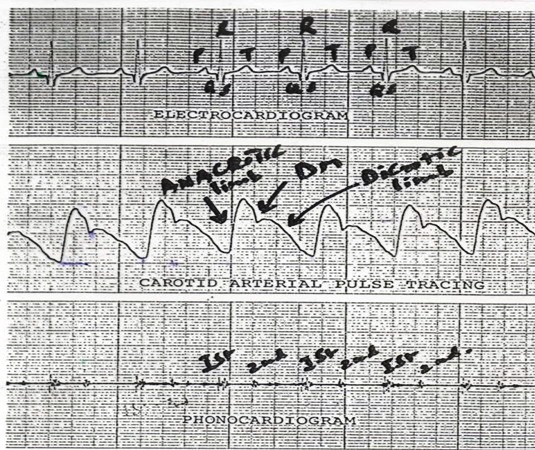 R R R
P T P T P T
QS QS QS
ELECTROCARDIOGRAM
ANACROTIC
limb
Dn
Dicrotic
limb
CAROTID ARTERIAL PULSE TRACING
Ist 2nd Ist 2nd Ist 2nd.
PHONOCARDIOGRAM